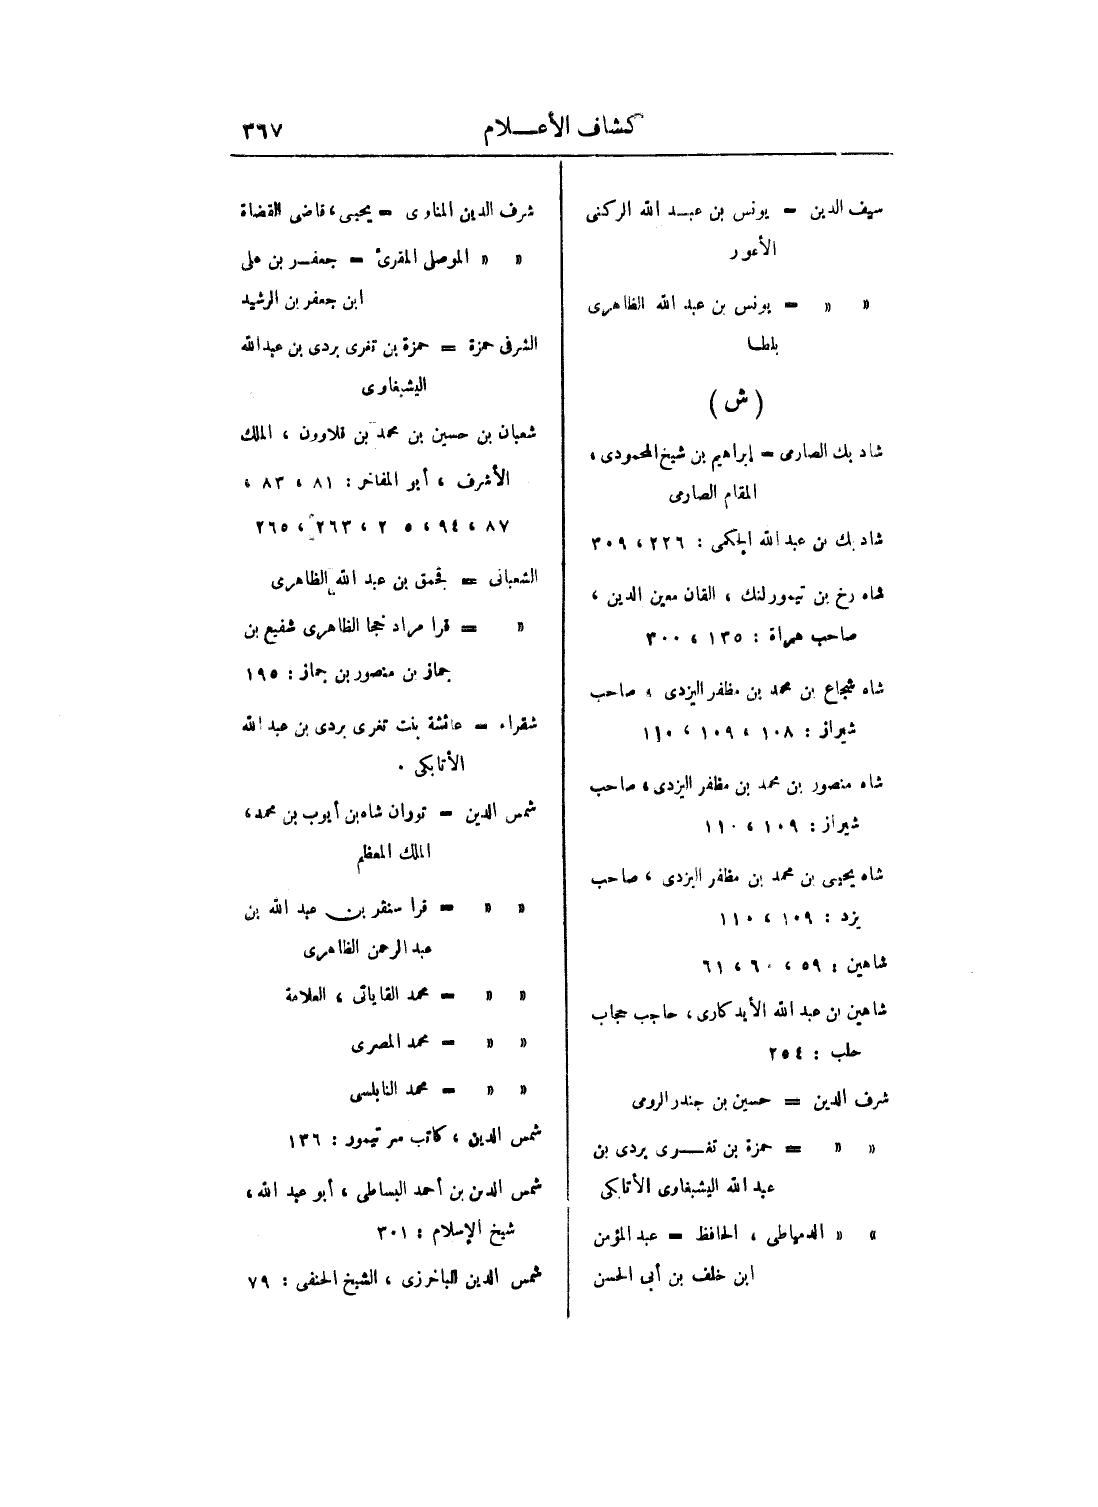 كشاف الأعـــلام
٣٦٧
سيف الدين = يونس بن عبـد الله الركنى
الأعور
» » = يونس بن عبد الله الظاهرى
بلطـا
( ش )
شاد بك الصارمى = إبراهيم بن شيخ المحمودى ،
المقام الصارمى
شاد بك بن عبد الله الجكمى : ٢٢٦ ، ٣٠٩
شاه رخ بن تيمور لنك ، القان معين الدين ،
صاحب هراة : ١٣٥ ، ٣٠٠
شاه شجاع بن محمد بن مظفر اليزدى ، صاحب
شيراز : ١٠٨ ، ١٠٩ ، ١١٠
شاه منصور بن محمد بن مظفر اليزدى ، صاحب
شيراز : ١٠٩ ، ١١٠
شاه يحيى بن محمد بن مظفر اليزدى ، صاحب
يزد : ١٠٩ ، ١١٠
شاهين : ٥٩ ، ٦٠ ، ٦١
شاهين بن عبد الله الأيدكارى ، حاجب حجاب
حلب : ٢٥٤
شرف الدين = حسين بن جندر الرومى
» » = حمزة بن تغـــرى بردى بن
عبد الله اليشبغاوى الأتابكى
» » الدمياطى ، الحافظ = عبد المؤمن
ابن خلف بن أبى الحسن
شرف الدين المناوى = يحيى ، قاضى القضاة
» » الموصلى المقرئ = جعفـر بن على
ابن جعفر بن الرشيد
الشرفى حمزة = حمزة بن تغرى بردى بن عبد الله
اليشبغاوى
شعبان بن حسين بن محمد بن قلاوون ، الملك
الأشرف ، أبو المفاخر : ٨١ ، ٨٣ ،
٨٧ ، ٩٤ ، ٥ ٢ ، ٢٦٣ ، ٢٦٥
الشعبانى = قجمق بن عبد الله الظاهرى
» = قرا مراد خجا الظاهرى شفيع بن
جماز بن منصور بن جماز : ١٩٥
شقراء = عائشة بنت تغرى بردى بن عبد الله
الأتابكى .
شمس الدين = توران شاه بن أيوب بن محمد ،
الملك المعظم
» » = قرا سنقر بن عبد الله بن
عبد الرحمن الظاهرى
» » = محمد القاياتى ، العلامة
» » = محمد المصرى
» » = محمد النابلسى
شمس الدين ، كاتب سر تيمور : ١٣٦
شمس الدين بن أحمد البساطى ، أبو عبد الله ،
شيخ الإسلام : ٣٠١
شمس الدين الباخرزى ، الشيخ الحنفى : ٧٩